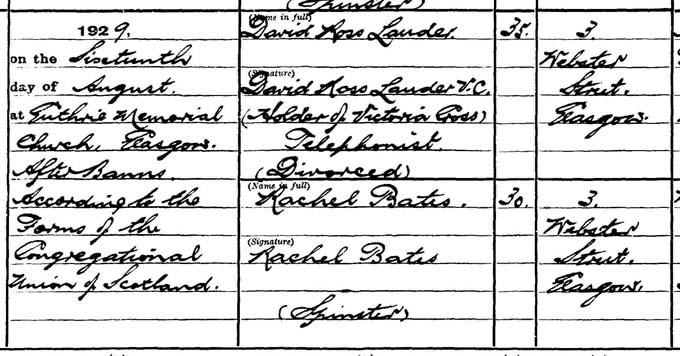 (Spinster)
1929. (Name in full) David Ross Lauder. 35. 3.
on the Sixteenth Webster
day of August. (Signature) David Ross Lauder V.C. Street.
at Guthrie Memorial (Holder of Victoria Cross) Glasgow.
Church, Glasgow. Telephonist.
After Banns. (Divorced)
According to the (Name in full) Rachel Bates. 30. 3.
Forms of the Webster
Congregational (Signature) Rachel Bates Street.
Union of Scotland. Glasgow.
(Spinster)